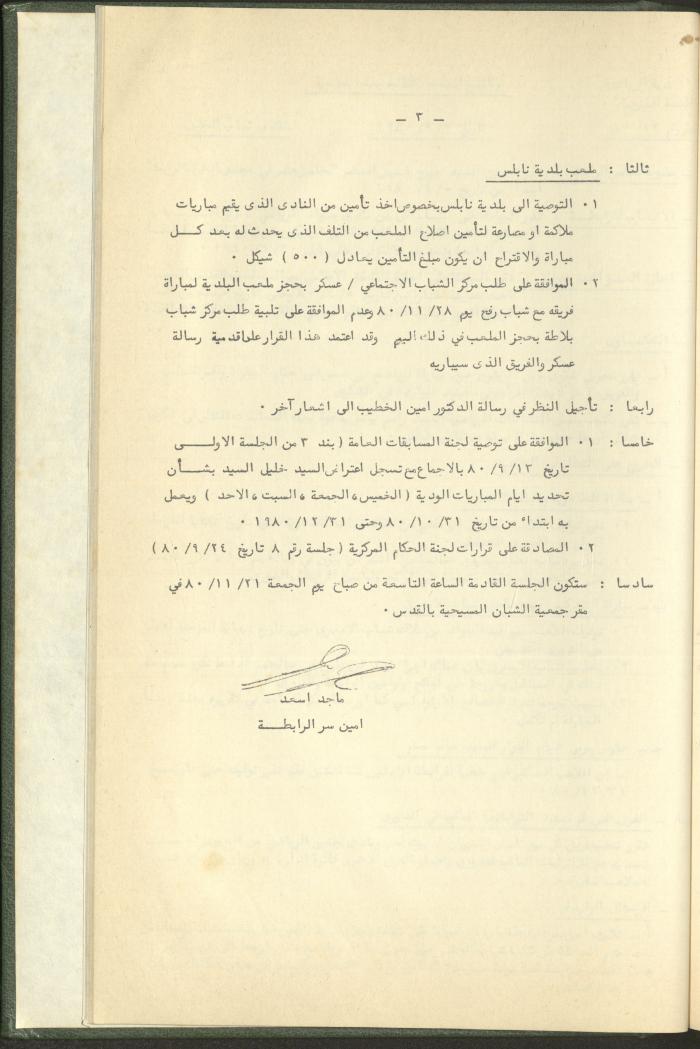 — ٣ —
ثالثا : ملعب بلدية نابلس
١٠ التوصية الى بلدية نابلس بخصوص اخذ تأمين من النادى الذى يقيم مباريات
ملاكمة او مصارعة لتأمين اصلاح الملعب من التلف الذى يحدث له بعد كـــل
مباراة والاقتراح ان يكون مبلغ التأمين يعادل ( ٥٠٠ ) شيكل ٠
٢٠ الموافقة على طلب مركز الشباب الاجتماعي / عسكر بحجز ملعب البلدية لمباراة
فريقه مع شباب رفح يوم ٢٨/ ١١/ ٨٠ وعدم الموافقة على تلبية طلب مركز شباب
بلاطة بحجز الملعب في ذلك اليم وقد اعتمد هذا القرار على اقدمية رسالة
عسكر والفريق الذى سيباريه
رابعا : تأجيل النظر في رسالة الدكتور امين الخطيب الى اشعار آخر ٠
خامسا : ١٠ الموافقة على توصية لجنة المسابقات العامة ( بند ٣ من الجلسة الاولــــى
تاريخ ١٣/ ٩/ ٨٠ بالاجماع مع تسجل اعتراض السيد خليل السيد بشـــأن
تحديد ايام المباريات الودية ( الخميس، الجمعة ، السبت ، الاحد ) ويعمل
به ابتداء من تاريخ ٣١/ ١٠/ ٨٠ وحتى ٣١/ ١٢/ ١٩٨٠ ٠
٢٠ المصادقة على قرارات لجنة الحكام المركزية ( جلسة رقم ٨ تاريخ ٢٤/ ٩/ ٨٠ )
سادسا : ستكون الجلسة القادمة الساعة التاسعة من صباح يوم الجمعة ٢١/ ١١/ ٨٠ في
مقر جمعية الشبان المسيحية بالقدس ٠
ماجد اسعد
امين سر الرابطـــة